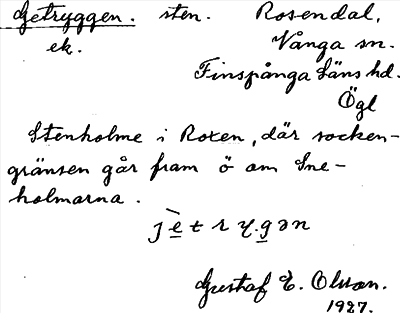 Getryggen. sten. Rosendal,
ek. Vånga sn.
Finspånga läns hd.
Ögl
Stenholme i Roxen, där socken-
gränsen går fram ö om Sne-
holmarna.
jètrygən
Gustaf E. Olsson.
1927.